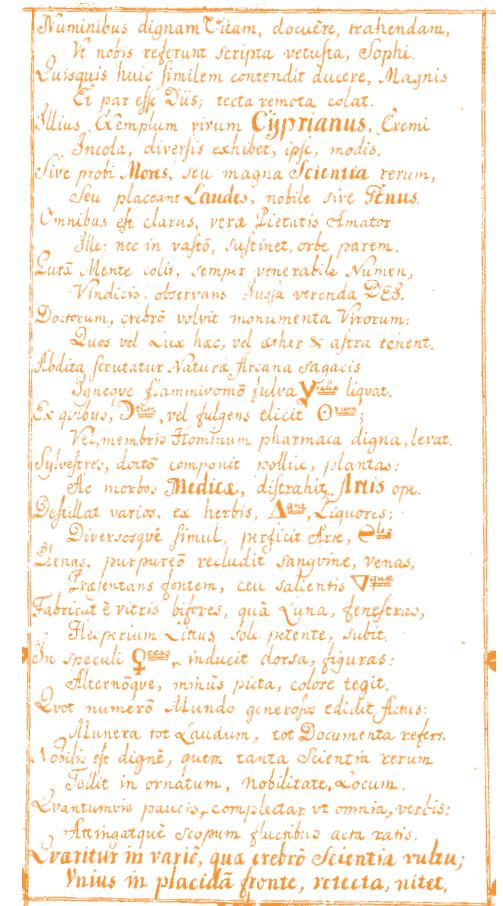 Numinibus dignam Vitam, docuêre, trahendam,
Vt nobis referunt scripta vetusta, Sophi.
Quisquis huic similem contendit ducere, Magnis
Et par esse Diis; tecta remota colat.
Illius Exemplum virum Cyprianus, Eremi
Incola, diversis exhibet, ipse, modis.
Sive probi Mons, seu magna Scientia rerum,
Seu placeant Laudes, nobile sive Genus.
Omnibus est clarus, veræ Pietatis Amator
Ille: nec in vastô, sustinet, orbe parem.
Purâ Mente colit, semper venerabile Numen,
Vindicis, observans Jussa verenda DEI.
Doctorum, crebrô volvit monumenta Virorum:
Quos vel Lux hæc, vel æther & astra tenent.
Abdita scrutatur Naturæ Arcana sagacis
Igneque flammivomô fulva liquat.
Ex quibus, vel fulgens elicit
Vel, membris Hominum pharmaca digna, levat.
Sylvestres, doctô componit pollice, plantas:
Ac morbos Medicæ, distrahit, Artis ope.
Destillat varios, ex herbis, Liquores;
Diversosqvê simul, perficit Arte,
Plenas, purpureô recludit sangvine, venas,
Præsentans fontem, ceu salientis
Fabricat è vitris bifores, quâ Luna, fenestras,
Hesperium Littus sole petente, subit.
In speculi inducit dorsa, figuras:
Alternôqve, minùs picta, colore tegit.
Qvot numerô Mundo generosos edidit Actus:
Munera tot Laudum, tot Documenta refert.
Nobilis est dignè, quem tanta Scientia rerum
Tollit in ornatum, nobilitate, Locum.
Qvantumvis paucis, complectar vt omnia, verbis:
Attingatquè scopum fluctibus acta ratis.
Qværitur in variô, qua crebrô Scientia vultu;
Vnius in placidâ fronte, retecta, nitet.